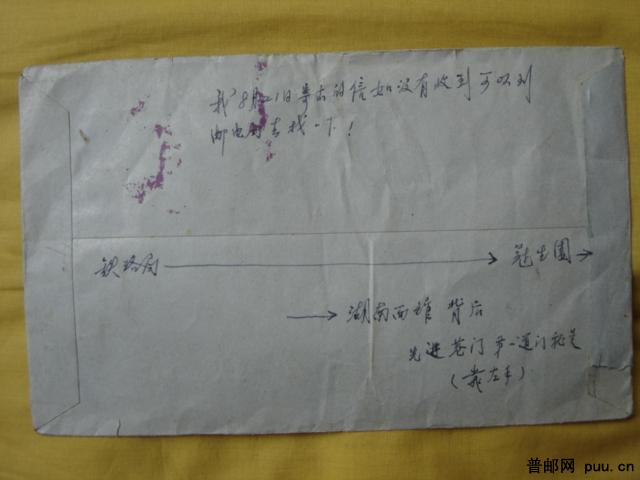 我8月21日寄去的信如没有收到可以到
邮电局去找一下！
铁路局 → 冠生園 →
→ 湖南面館 背后
先进巷门 第一道门就是
（靠左手）
普邮网 puu.cn